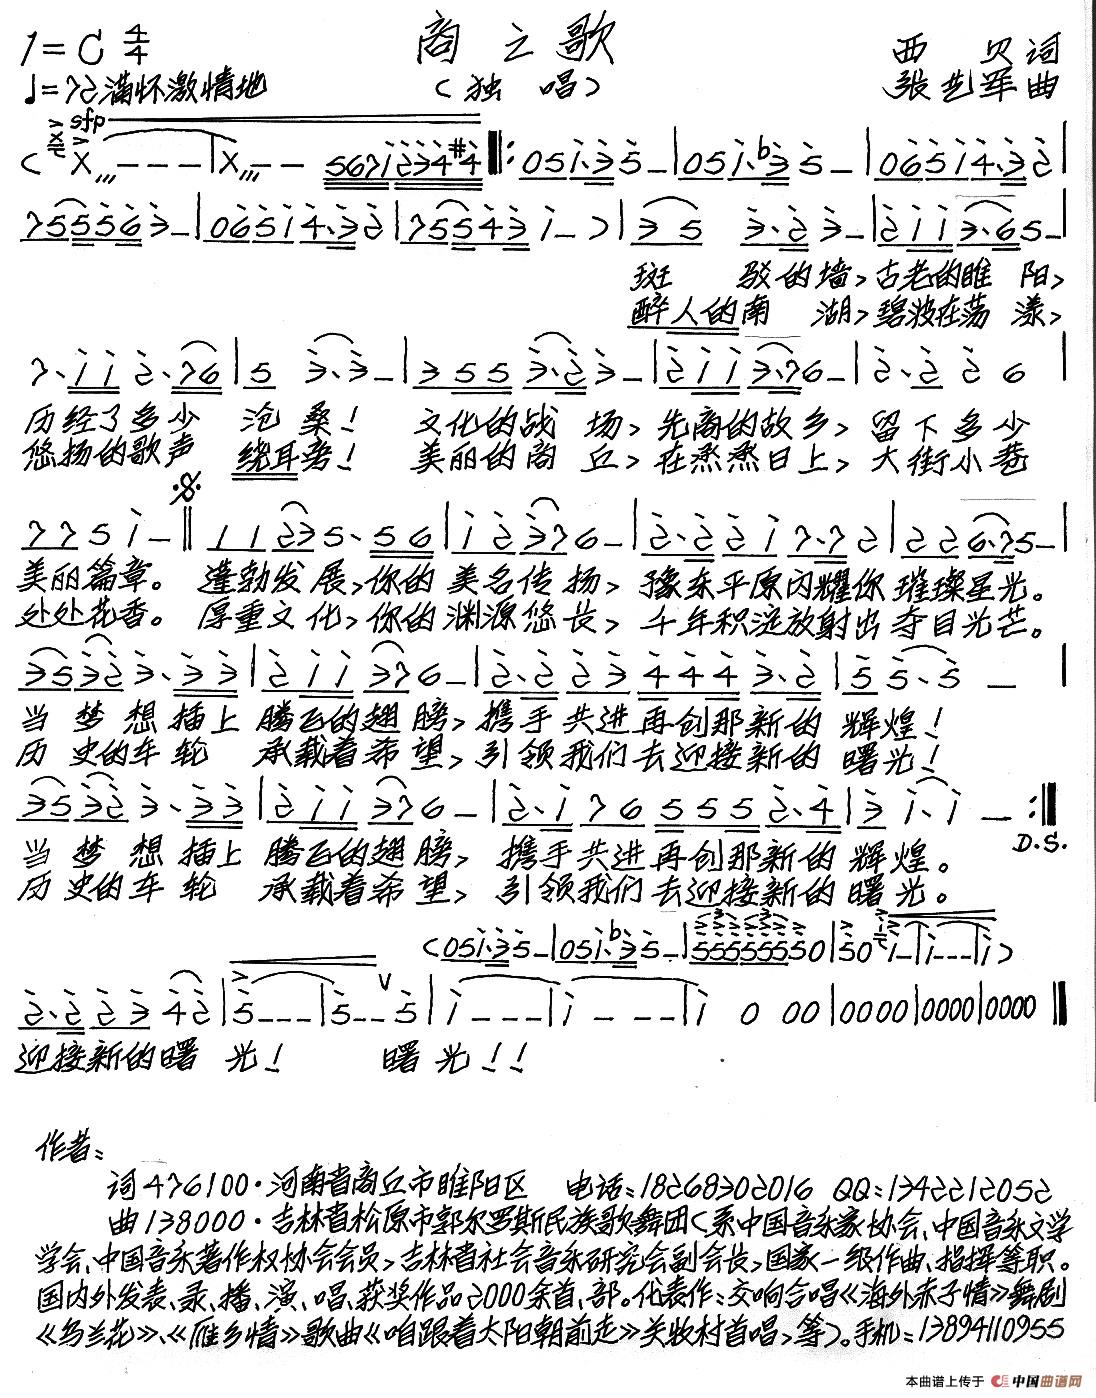 商之歌
1=C 4/4
(独 唱)
西 贝词
♩=72满怀激情地
张艺军曲
sfp
斑 驳的墙，古老的睢 阳，
醉人的南 湖，碧波在荡 漾，
历经了多少 沧 桑！ 文化的战 场，先商的故乡，留下多少
悠扬的歌声 绕耳旁！ 美丽的商 丘，在蒸蒸日上，大街小巷
美丽篇章。 蓬勃发展，你的美名传扬，豫东平原闪耀你璀璨星光。
处处花香。 厚重文化，你的渊源悠长，千年积淀放射出夺目光芒。
当 梦 想 插上 腾飞的翅 膀，携手共进再创那新的 辉煌！
历 史的车 轮 承载着希 望，引领我们去迎接新的 曙光！
D.S.
当 梦 想 插上 腾飞的翅 膀， 携手共进再创那新的 辉煌。
历 史的车 轮 承载着希 望， 引领我们去迎接新的 曙光。
迎接新的曙 光！ 曙 光！！
作者：
词476100·河南省商丘市睢阳区 电话：18268302016 QQ：1342212052
曲138000·吉林省松原市郭尔罗斯民族歌舞团(系中国音乐家协会、中国音乐文学
学会、中国音乐著作权协会会员，吉林省社会音乐研究会副会长，国家一级作曲、指挥等职。
国内外发表、录、播、演、唱、获奖作品2000余首、部。代表作：交响合唱《海外赤子情》舞剧
《乌兰花》、《雁乡情》歌曲《咱跟着太阳朝前走》关牧村首唱，等)。手机：13894110955
本曲谱上传于 中国曲谱网